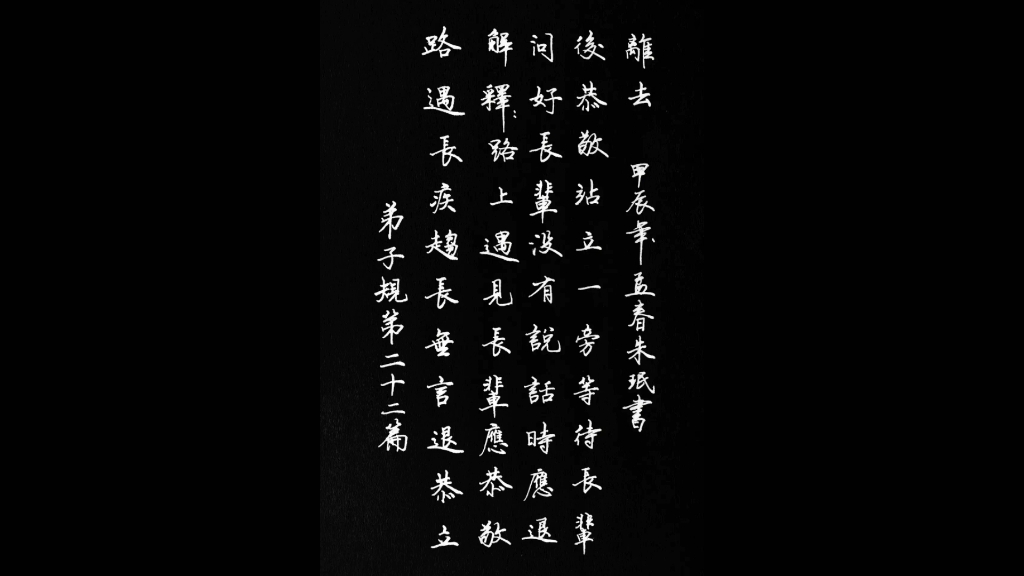 弟子規第二十二篇
路遇長疾趨長無言退恭立
解釋：路上遇見長輩應恭敬
問好長輩没有說話時應退
後恭敬站立一旁等待長輩
離去 甲辰年孟春朱珉書